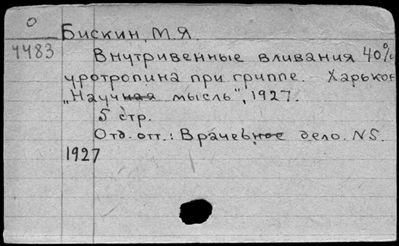 О
Бискин, М.Я.
7483
Внутривенные вливания 40%
уротропина при гриппе. Харьков
„Научная мысль", 1927.
5 стр.
Отд. отт.: Врачебное дело. N5.
1927